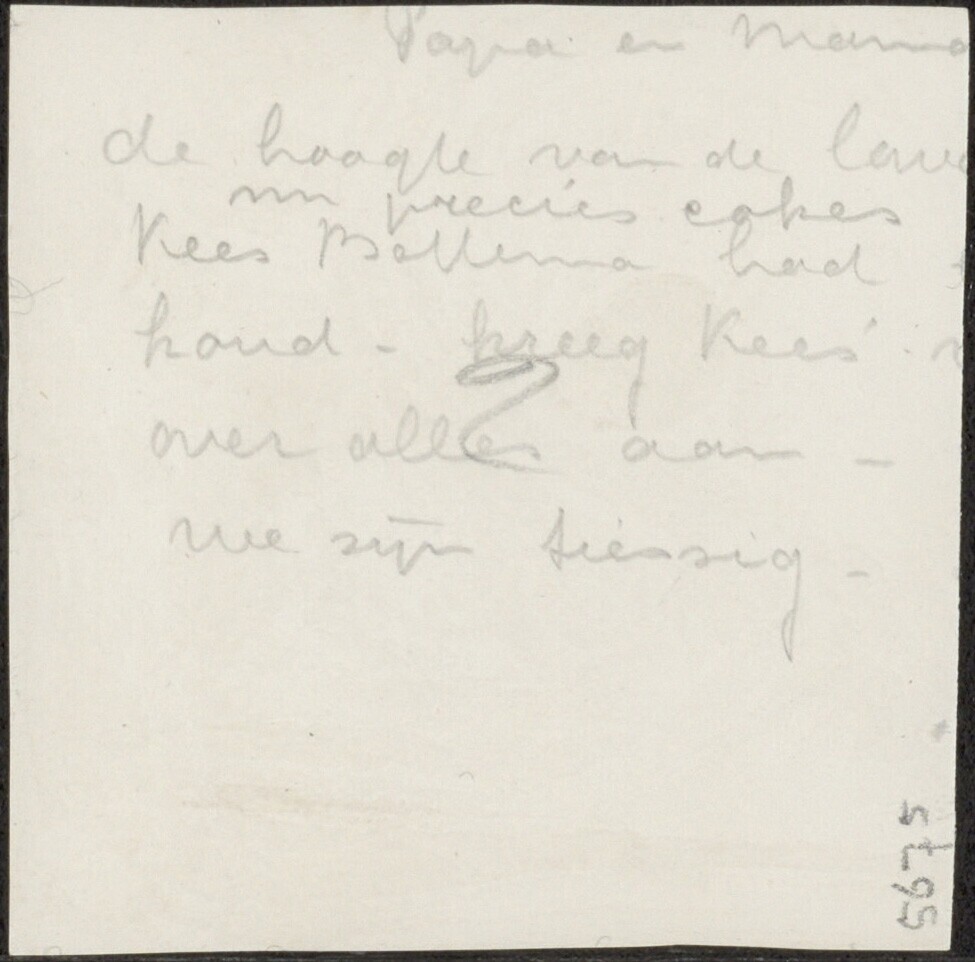 Papa en Mama
de hoogte van de
nu precies cokes
Kees Bottema had
hond - kreeg Kees'
over alles aan -
we zijn tiessig -
5675